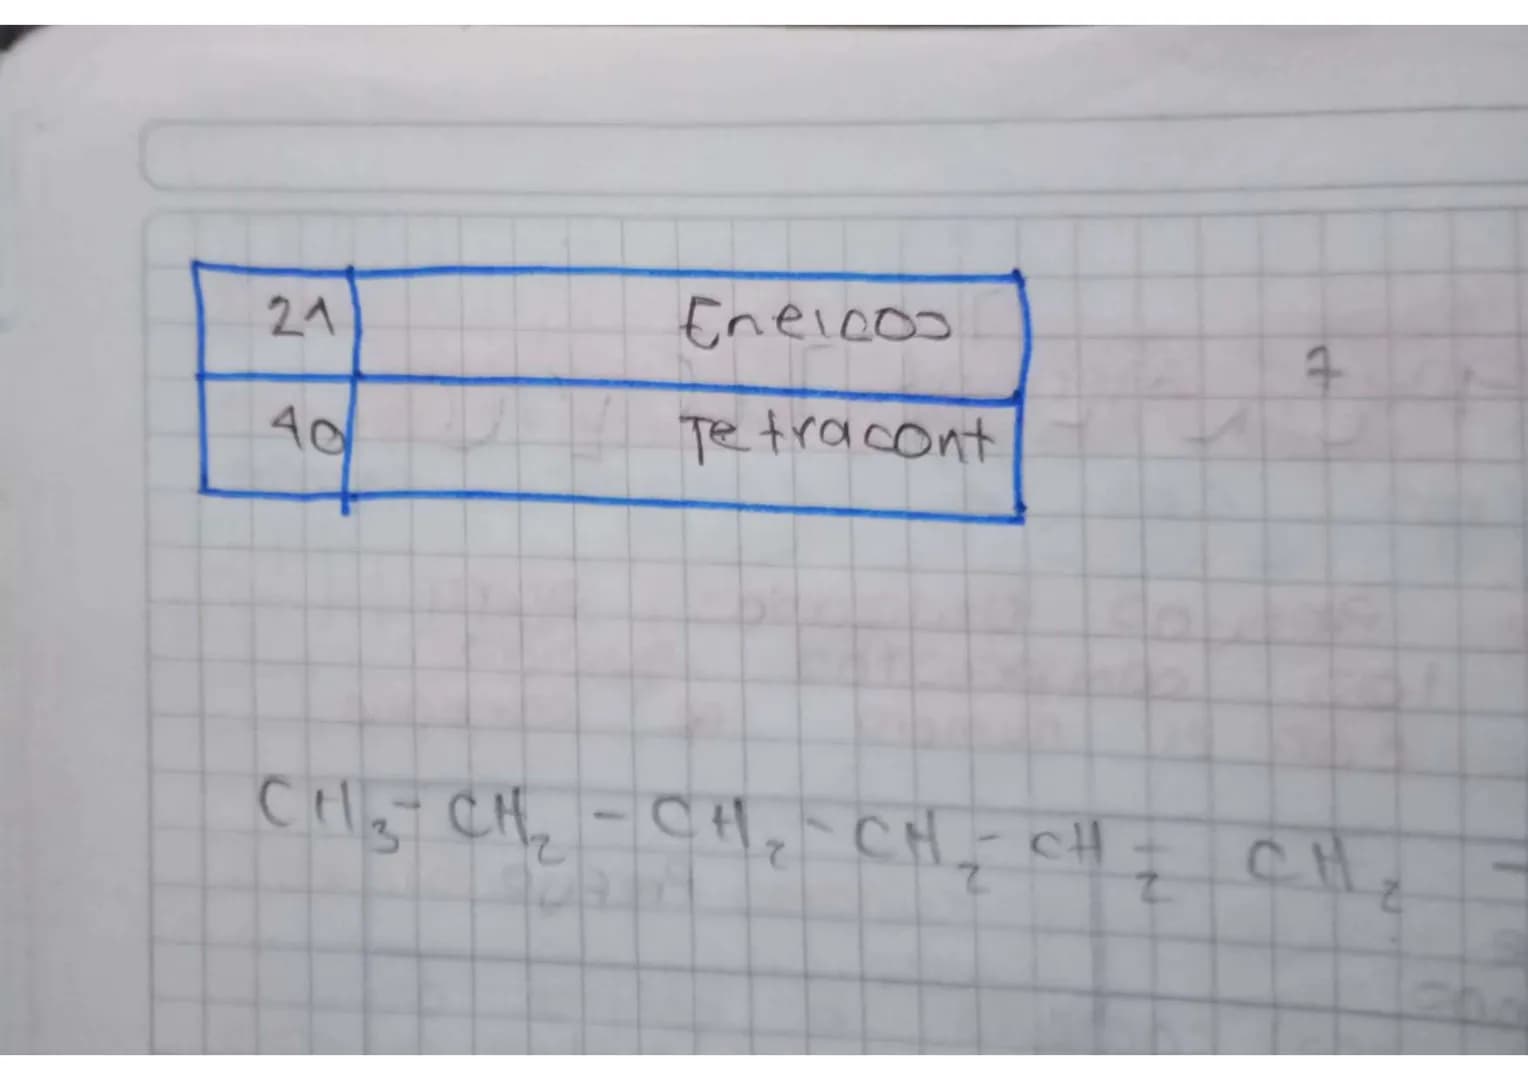 21 Eneicos
7
40 Tetracont
CH₃-CH₂-CH₂-CH₂-CH₂-CH₂-